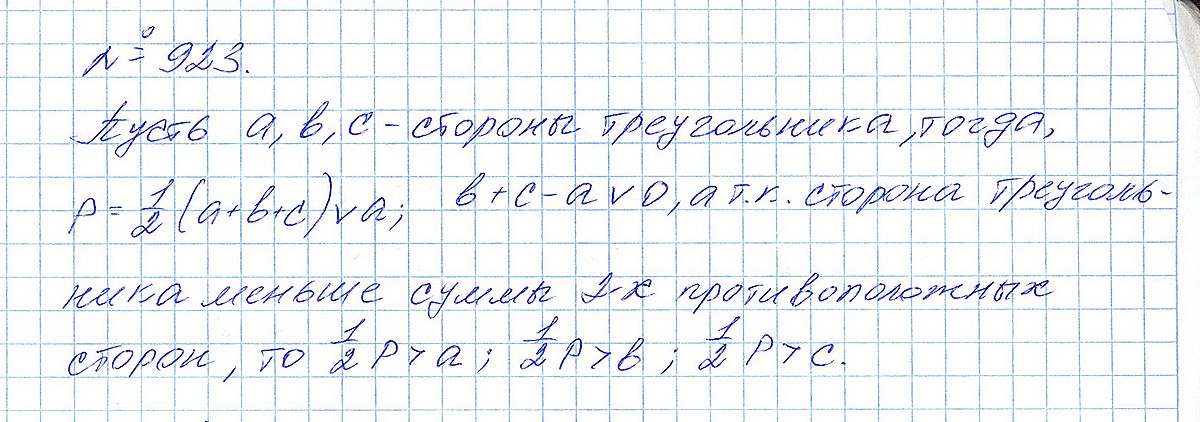 № 923.
Пусть a, b, c - стороны треугольника, тогда,
P = 1/2 (a+b+c) ∨ a; b + c - a ∨ 0, а т.к. сторона треуголь-
ника меньше суммы 2-х противоположных
сторон, то 1/2 P > a; 1/2 P > b; 1/2 P > c.